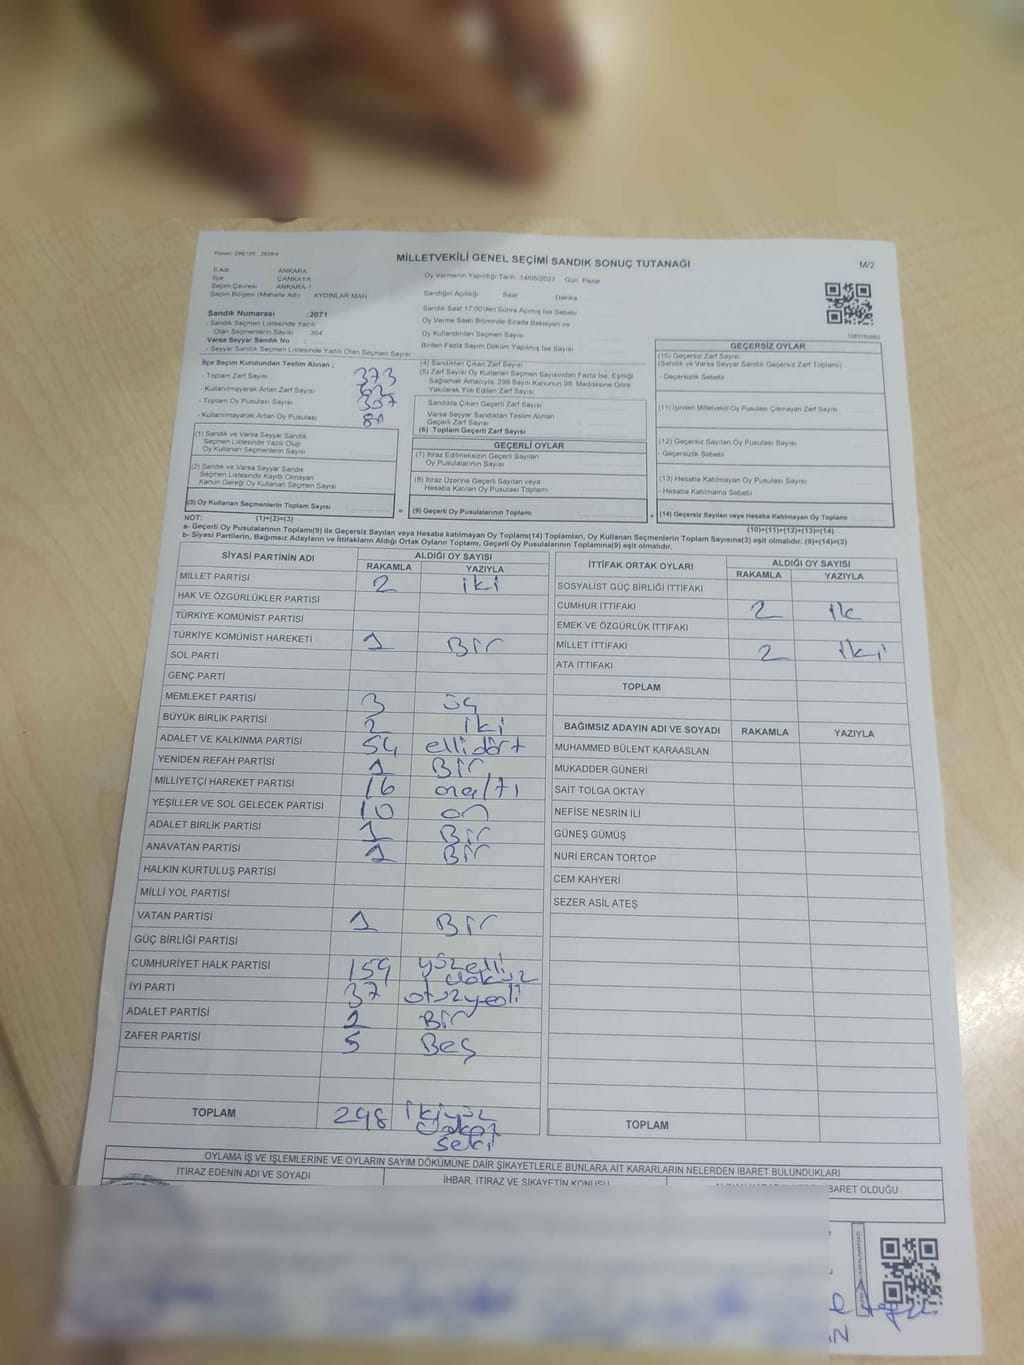 Kanun: 298/105 2839/4
MİLLETVEKİLİ GENEL SEÇİMİ SANDIK SONUÇ TUTANAĞI
M/2
İl Adı ANKARA
İlçe ÇANKAYA
Seçim Çevresi ANKARA-1
Seçim Bölgesi (Mahalle Adı) AYDINLAR MAH
Sandık Numarası :2071
- Sandık Seçmen Listesinde Yazılı
Olan Seçmenlerin Sayısı : 364
Varsa Seyyar Sandık No :
- Seyyar Sandık Seçmen Listesinde Yazılı Olan Seçmen Sayısı
Oy Vermenin Yapıldığı Tarih 14/05/2023 Gün Pazar
Sandığın Açıldığı Saat Dakika
Sandık Saat 17:00'den Sonra Açılmış İse Sebebi
Oy Verme Saati Bitiminde Sırada Bekleyen ve
Oy Kullandırılan Seçmen Sayısı
Birden Fazla Sayım Döküm Yapılmış İse Sayısı
İlçe Seçim Kurulundan Teslim Alınan ;
- Toplam Zarf Sayısı 373
- Kullanılmayarak Artan Zarf Sayısı
- Toplam Oy Pusulası Sayısı
- Kullanılmayarak Artan Oy Pusulası
(1) Sandık ve Varsa Seyyar Sandık
Seçmen Listesinde Yazılı Olup
Oy Kullanan Seçmenlerin Sayısı
(2) Sandık ve Varsa Seyyar Sandık
Seçmen Listesinde Kayıtlı Olmayan
Kanun Gereği Oy Kullanan Seçmen Sayısı
(3) Oy Kullanan Seçmenlerin Toplam Sayısı
(4) Sandıktan Çıkan Zarf Sayısı
(5) Zarf Sayısı Oy Kullanan Seçmen Sayısından Fazla İse, Eşitliği
Sağlamak Amacıyla, 298 Sayılı Kanunun 98. Maddesine Göre
Yakılarak Yok Edilen Zarf Sayısı
Sandıkta Çıkan Geçerli Zarf Sayısı
Varsa Seyyar Sandıktan Teslim Alınan
Geçerli Zarf Sayısı
(6) Toplam Geçerli Zarf Sayısı
GEÇERLİ OYLAR
(7) İtiraz Edilmeksizin Geçerli Sayılan
Oy Pusulalarının Sayısı
(8) İtiraz Üzerine Geçerli Sayılan veya
Hesaba Katılan Oy Pusulası Toplamı
= (9) Geçerli Oy Pusulalarının Toplamı
GEÇERSİZ OYLAR
(10) Geçersiz Zarf Sayısı
(Sandık ve Varsa Seyyar Sandık Geçersiz Zarf Toplamı)
- Geçersizlik Sebebi
(11) İçinden Milletvekili Oy Pusulası Çıkmayan Zarf Sayısı
(12) Geçersiz Sayılan Oy Pusulası Sayısı
- Geçersizlik Sebebi
(13) Hesaba Katılmayan Oy Pusulası Sayısı
- Hesaba Katılmama Sebebi
+ (14) Geçersiz Sayılan veya Hesaba Katılmayan Oy Toplamı
NOT: (1)+(2)=(3) (10)+(11)+(12)+(13)=(14)
a- Geçerli Oy Pusulalarının Toplamı(9) ile Geçersiz Sayılan veya Hesaba katılmayan Oy Toplamı(14) Toplamları, Oy Kullanan Seçmenlerin Toplam Sayısına(3) eşit olmalıdır. (9)+(14)=(3)
b- Siyasi Partilerin, Bağımsız Adayların ve İttifakların Aldığı Ortak Oyların Toplamı, Geçerli Oy Pusulalarının Toplamına(9) eşit olmalıdır.
SİYASİ PARTİNİN ADI ALDIĞI OY SAYISI
RAKAMLA YAZIYLA
MİLLET PARTİSİ 2 iki
HAK VE ÖZGÜRLÜKLER PARTİSİ
TÜRKİYE KOMÜNİST PARTİSİ
TÜRKİYE KOMÜNİST HAREKETİ 1 Bir
SOL PARTİ
GENÇ PARTİ
MEMLEKET PARTİSİ 3 üç
BÜYÜK BİRLİK PARTİSİ 2 iki
ADALET VE KALKINMA PARTİSİ 54 ellidört
YENİDEN REFAH PARTİSİ 1 Bir
MİLLİYETÇİ HAREKET PARTİSİ 16 onaltı
YEŞİLLER VE SOL GELECEK PARTİSİ 10 on
ADALET BİRLİK PARTİSİ 1 Bir
ANAVATAN PARTİSİ 1 Bir
HALKIN KURTULUŞ PARTİSİ
MİLLİ YOL PARTİSİ
VATAN PARTİSİ 1 Bir
GÜÇ BİRLİĞİ PARTİSİ
CUMHURİYET HALK PARTİSİ 159 yüzelli dokuz
İYİ PARTİ 37 otuzyedi
ADALET PARTİSİ 1 Bir
ZAFER PARTİSİ 5 Beş
TOPLAM 298 ikiyüz
dokso
seki
İTTİFAK ORTAK OYLARI ALDIĞI OY SAYISI
RAKAMLA YAZIYLA
SOSYALİST GÜÇ BİRLİĞİ İTTİFAKI
CUMHUR İTTİFAKI 2 ik
EMEK VE ÖZGÜRLÜK İTTİFAKI
MİLLET İTTİFAKI 2 iki
ATA İTTİFAKI
TOPLAM
BAĞIMSIZ ADAYIN ADI VE SOYADI RAKAMLA YAZIYLA
MUHAMMED BÜLENT KARAASLAN
MUKADDER GÜNERİ
SAİT TOLGA OKTAY
NEFİSE NESRİN İLİ
GÜNEŞ GÜMÜŞ
NURİ ERCAN TORTOP
CEM KAHYERİ
SEZER ASİL ATEŞ
TOPLAM
OYLAMA İŞ VE İŞLEMLERİNE VE OYLARIN SAYIM DÖKÜMÜNE DAİR ŞİKAYETLERLE BUNLARA AİT KARARLARIN NELERDEN İBARET BULUNDUKLARI
İTİRAZ EDENİN ADI VE SOYADI
İHBAR, İTİRAZ VE ŞİKAYETİN KONUSU
BARET OLDUĞU